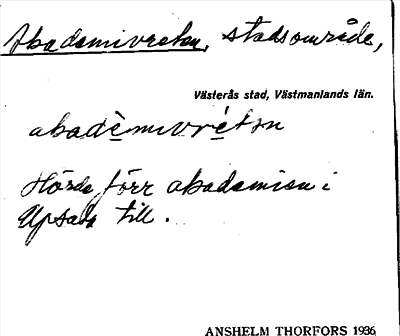 Akademivreten, stadsområde,
Västerås stad, Västmanlands län.
akadèmivréten
Hörde förr akademien i
Upsala till.
ANSHELM THORFORS 1936